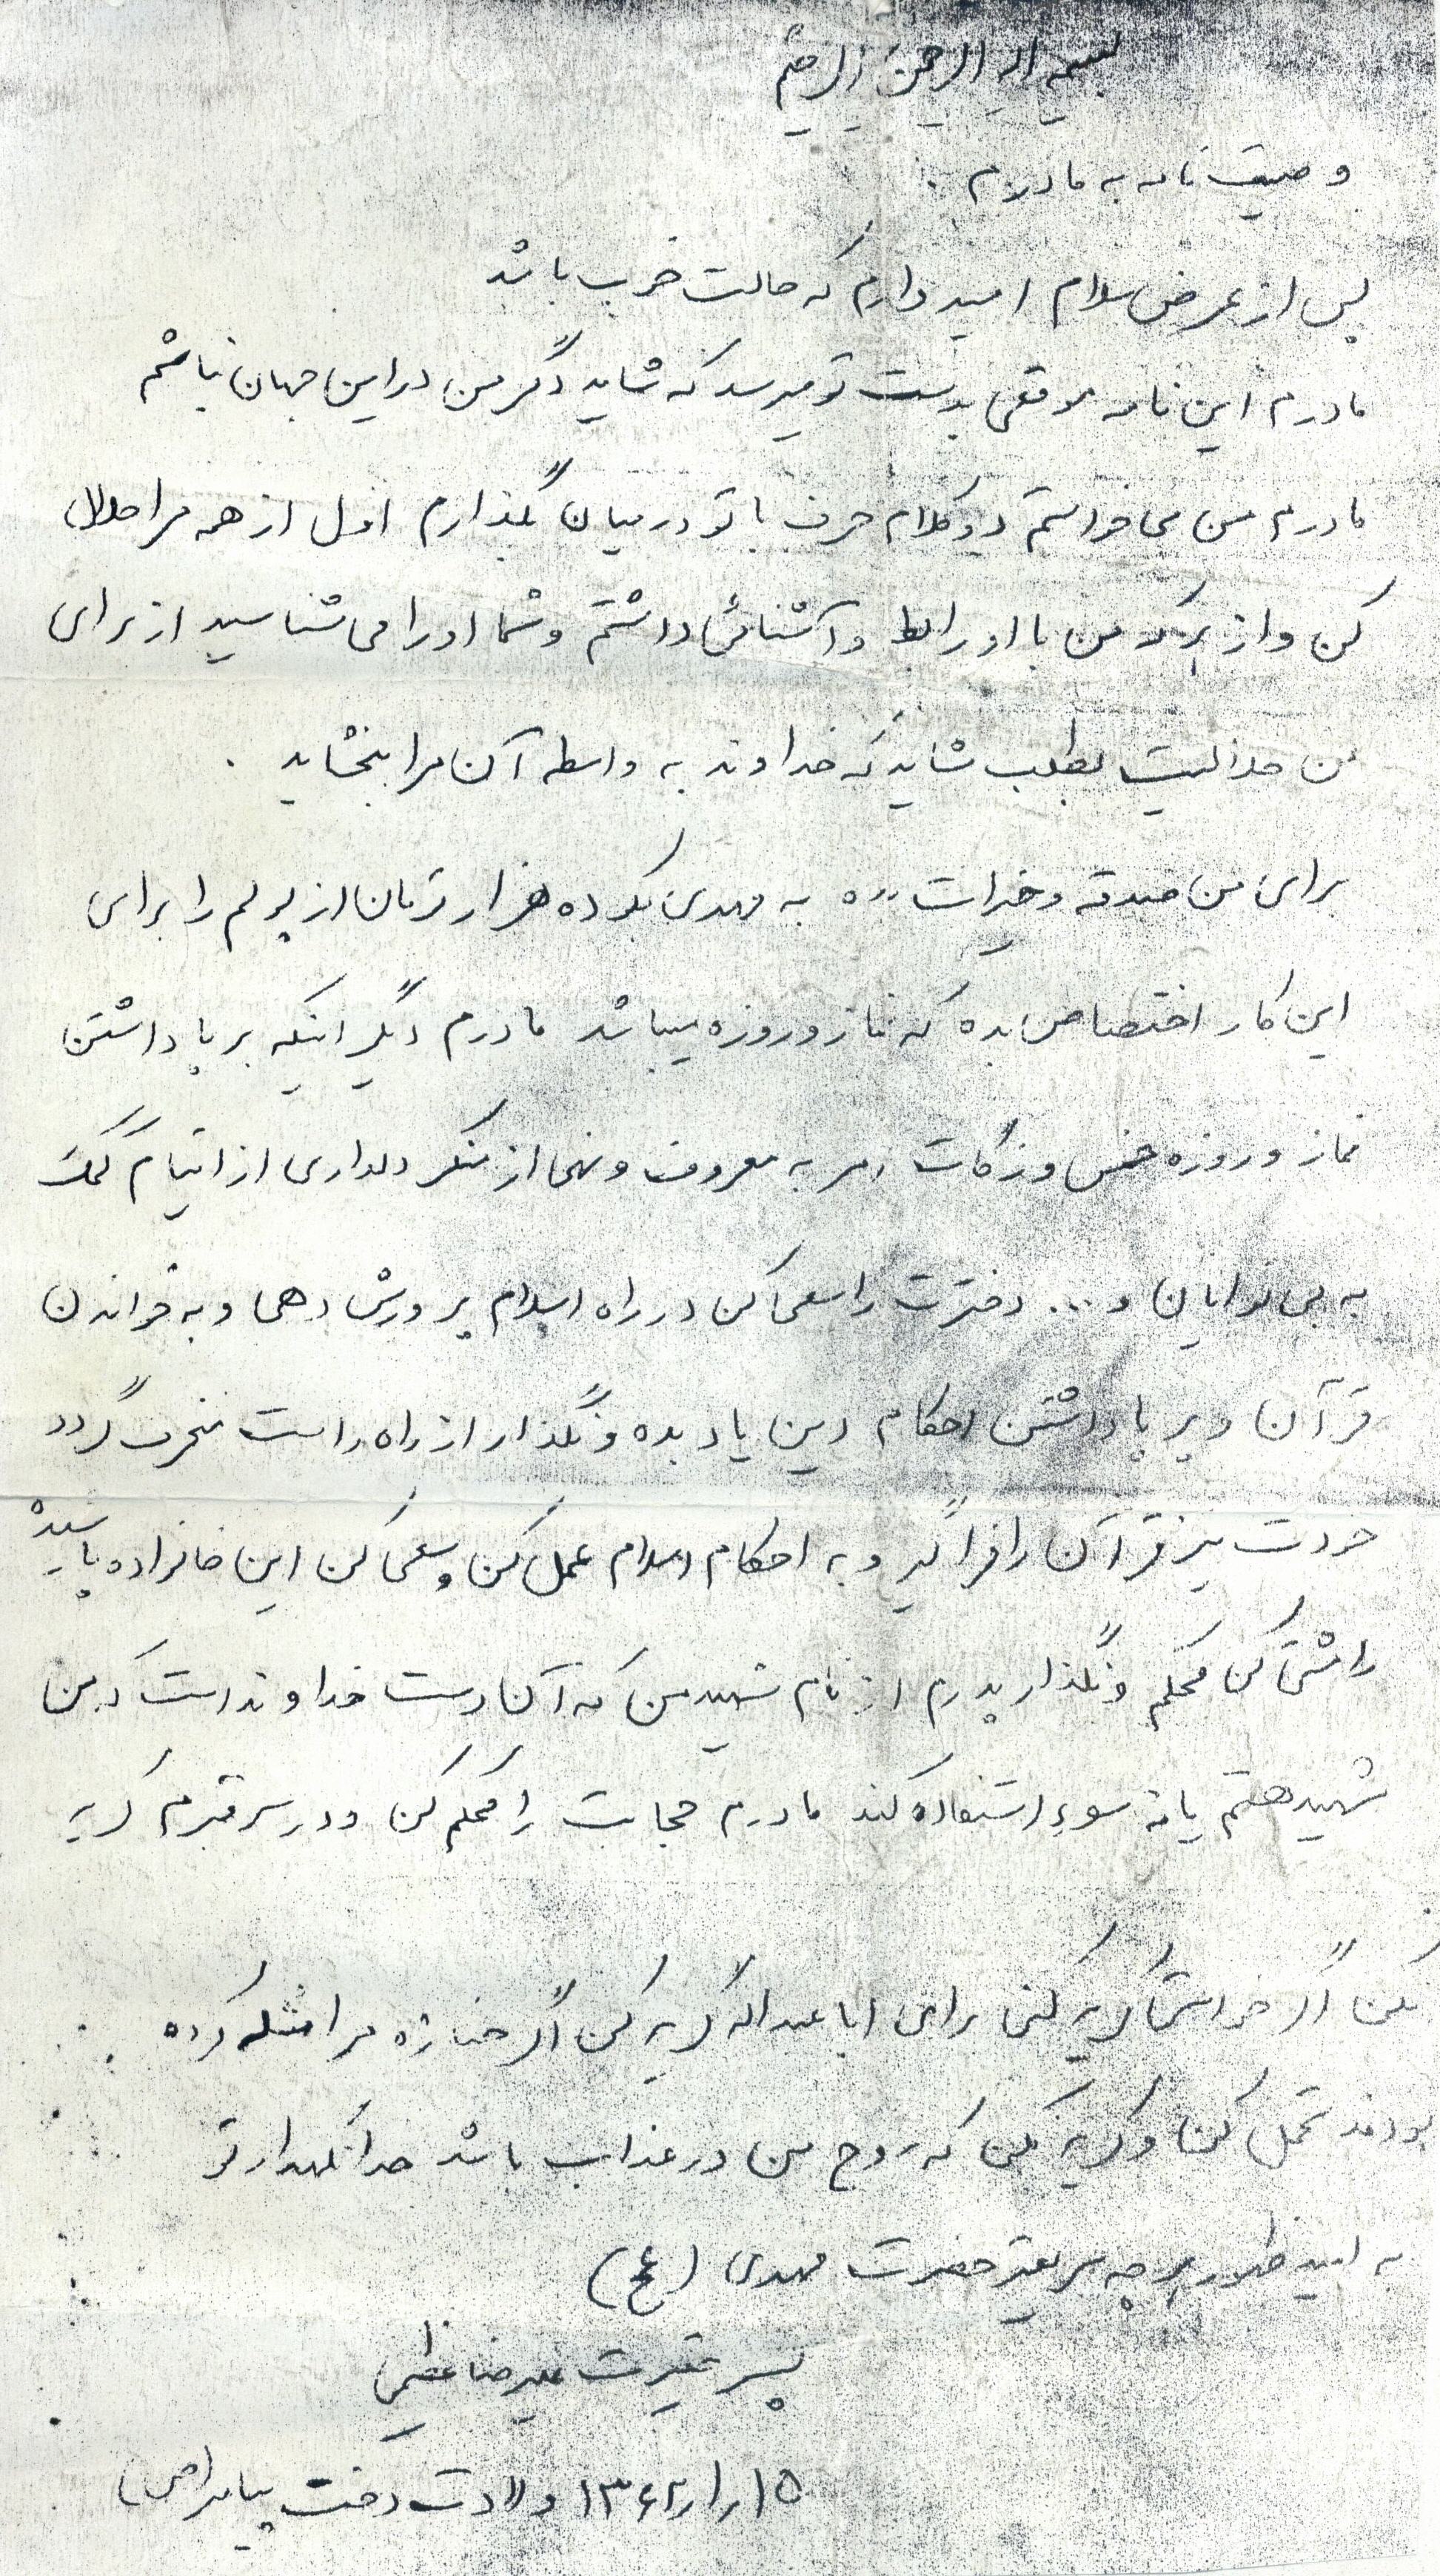 بسمه اله الرحمن الرحیم
وصیت نامه به مادرم .
پس از عرض سلام امیدوارم که حالت خوب باشد
مادرم این نامه موقعی بدست تو میرسد که شاید دگر من در این جهان نباشم
مادرم من می خواستم دو کلام حرف با تو در میان بگذارم اول از همه مرا حلال
کن و از هر که من با او رابط و آشنائی داشتم و شما او را می شناسید از برای
من حلالیت بطلب شاید که خداوند به واسطه آن مرا ببخشاید .
برای من صدقه و خیرات بده به مهدی بگو ده هزار تومان از پولم را برای
این کار اختصاص بده که نماز و روزه میباشد مادرم دیگر اینکه بر پا داشتن
نماز و روزه خمس و زکات امر به معروف و نهی از منکر دلداری از ایتام کمک
به بی نوایان و ... دخترت را سعی کن در راه اسلام پرورش دهی و به خواندن
قرآن و بر پا داشتن احکام دین یاد بده و نگذار از راه راست منحرف گردد
خودت نیز قرآن را فراگیر و به احکام اسلام عمل کن و سعی کن این خانواده پاشیده
را مشتی کن محکم و نگذار پدرم از نام شهید من که آن دست خداوند است که من
شهید هستم یا نه سوء استفاده کند مادرم حجابت را محکم کن و در سر قبرم گریه
نکن اگر خواستی گریه کنی برای ابا عبداله گریه کن اگر جنازه مرا مثله کرده
بودند تحمل کن و گریه نکن که روح من در عذاب باشد خدا نگهدار تو
به امید ظهور هر چه سریعتر حضرت مهدی (عج)
پسر حقیرت علیرضا عظیمی
۱۵/۱/۱۳۶۲ ولادت دخت پیامبر (ص)